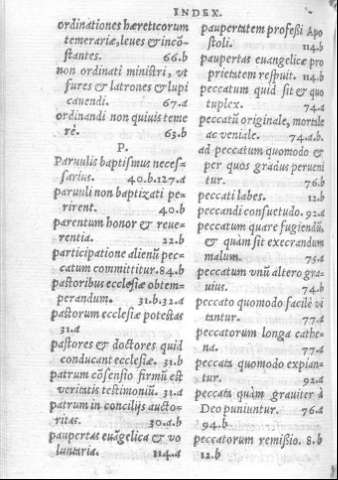 INDEX.
ordinationes hæreticorum
temerariæ, leues & incō-
stantes. 66.b
non ordinati ministri, vt
fures & latrones & lupi
cauendi. 67.a
ordinandi non quiuis teme
rè. 63.b
P.
Paruulis baptismus neces-
sarius. 40.b.127.a
paruuli non baptizati pe-
rirent. 40.b
parentum honor & reue-
rentia. 22.b
participatione alienū pec-
catum committitur. 84.b
pastoribus ecclesiæ obtem-
perandum. 31.b.32.a
pastorum ecclesiæ potestas
31.a
pastores & doctores quid
conducant ecclesiæ. 31.b
patrum cōsensio firmū est
veritatis testimoniū. 31.a
patrum in concilijs aucto-
ritas. 30.a.b
paupertas euāgelica & vo
luntaria. 114.a
paupertatem professi Apo
stoli. 114.b
paupertas euangelica pro
prietatem respuit. 114.b
peccatum quid sit & quo
tuplex. 74.a
peccatū originale, mortale
ac veniale. 74.a.b.
ad peccatum quomodo &
per quos gradus perueni
tur. 76.b
peccati labes. 12.b
peccandi consuetudo. 92.a
peccatum quare fugiendū,
& quàm sit execrandum
malum. 75.a
peccatum vnū altero gra-
uius. 74.b
peccato quomodo facilè vi
tantur. 77.a
peccatorum longa cathe-
na. 77.a
peccata quomodo expian-
tur. 92.a
peccata quàm grauiter à
Deo puniuntur. 76.a
94.b
peccatorum remissio. 8.b
12.b